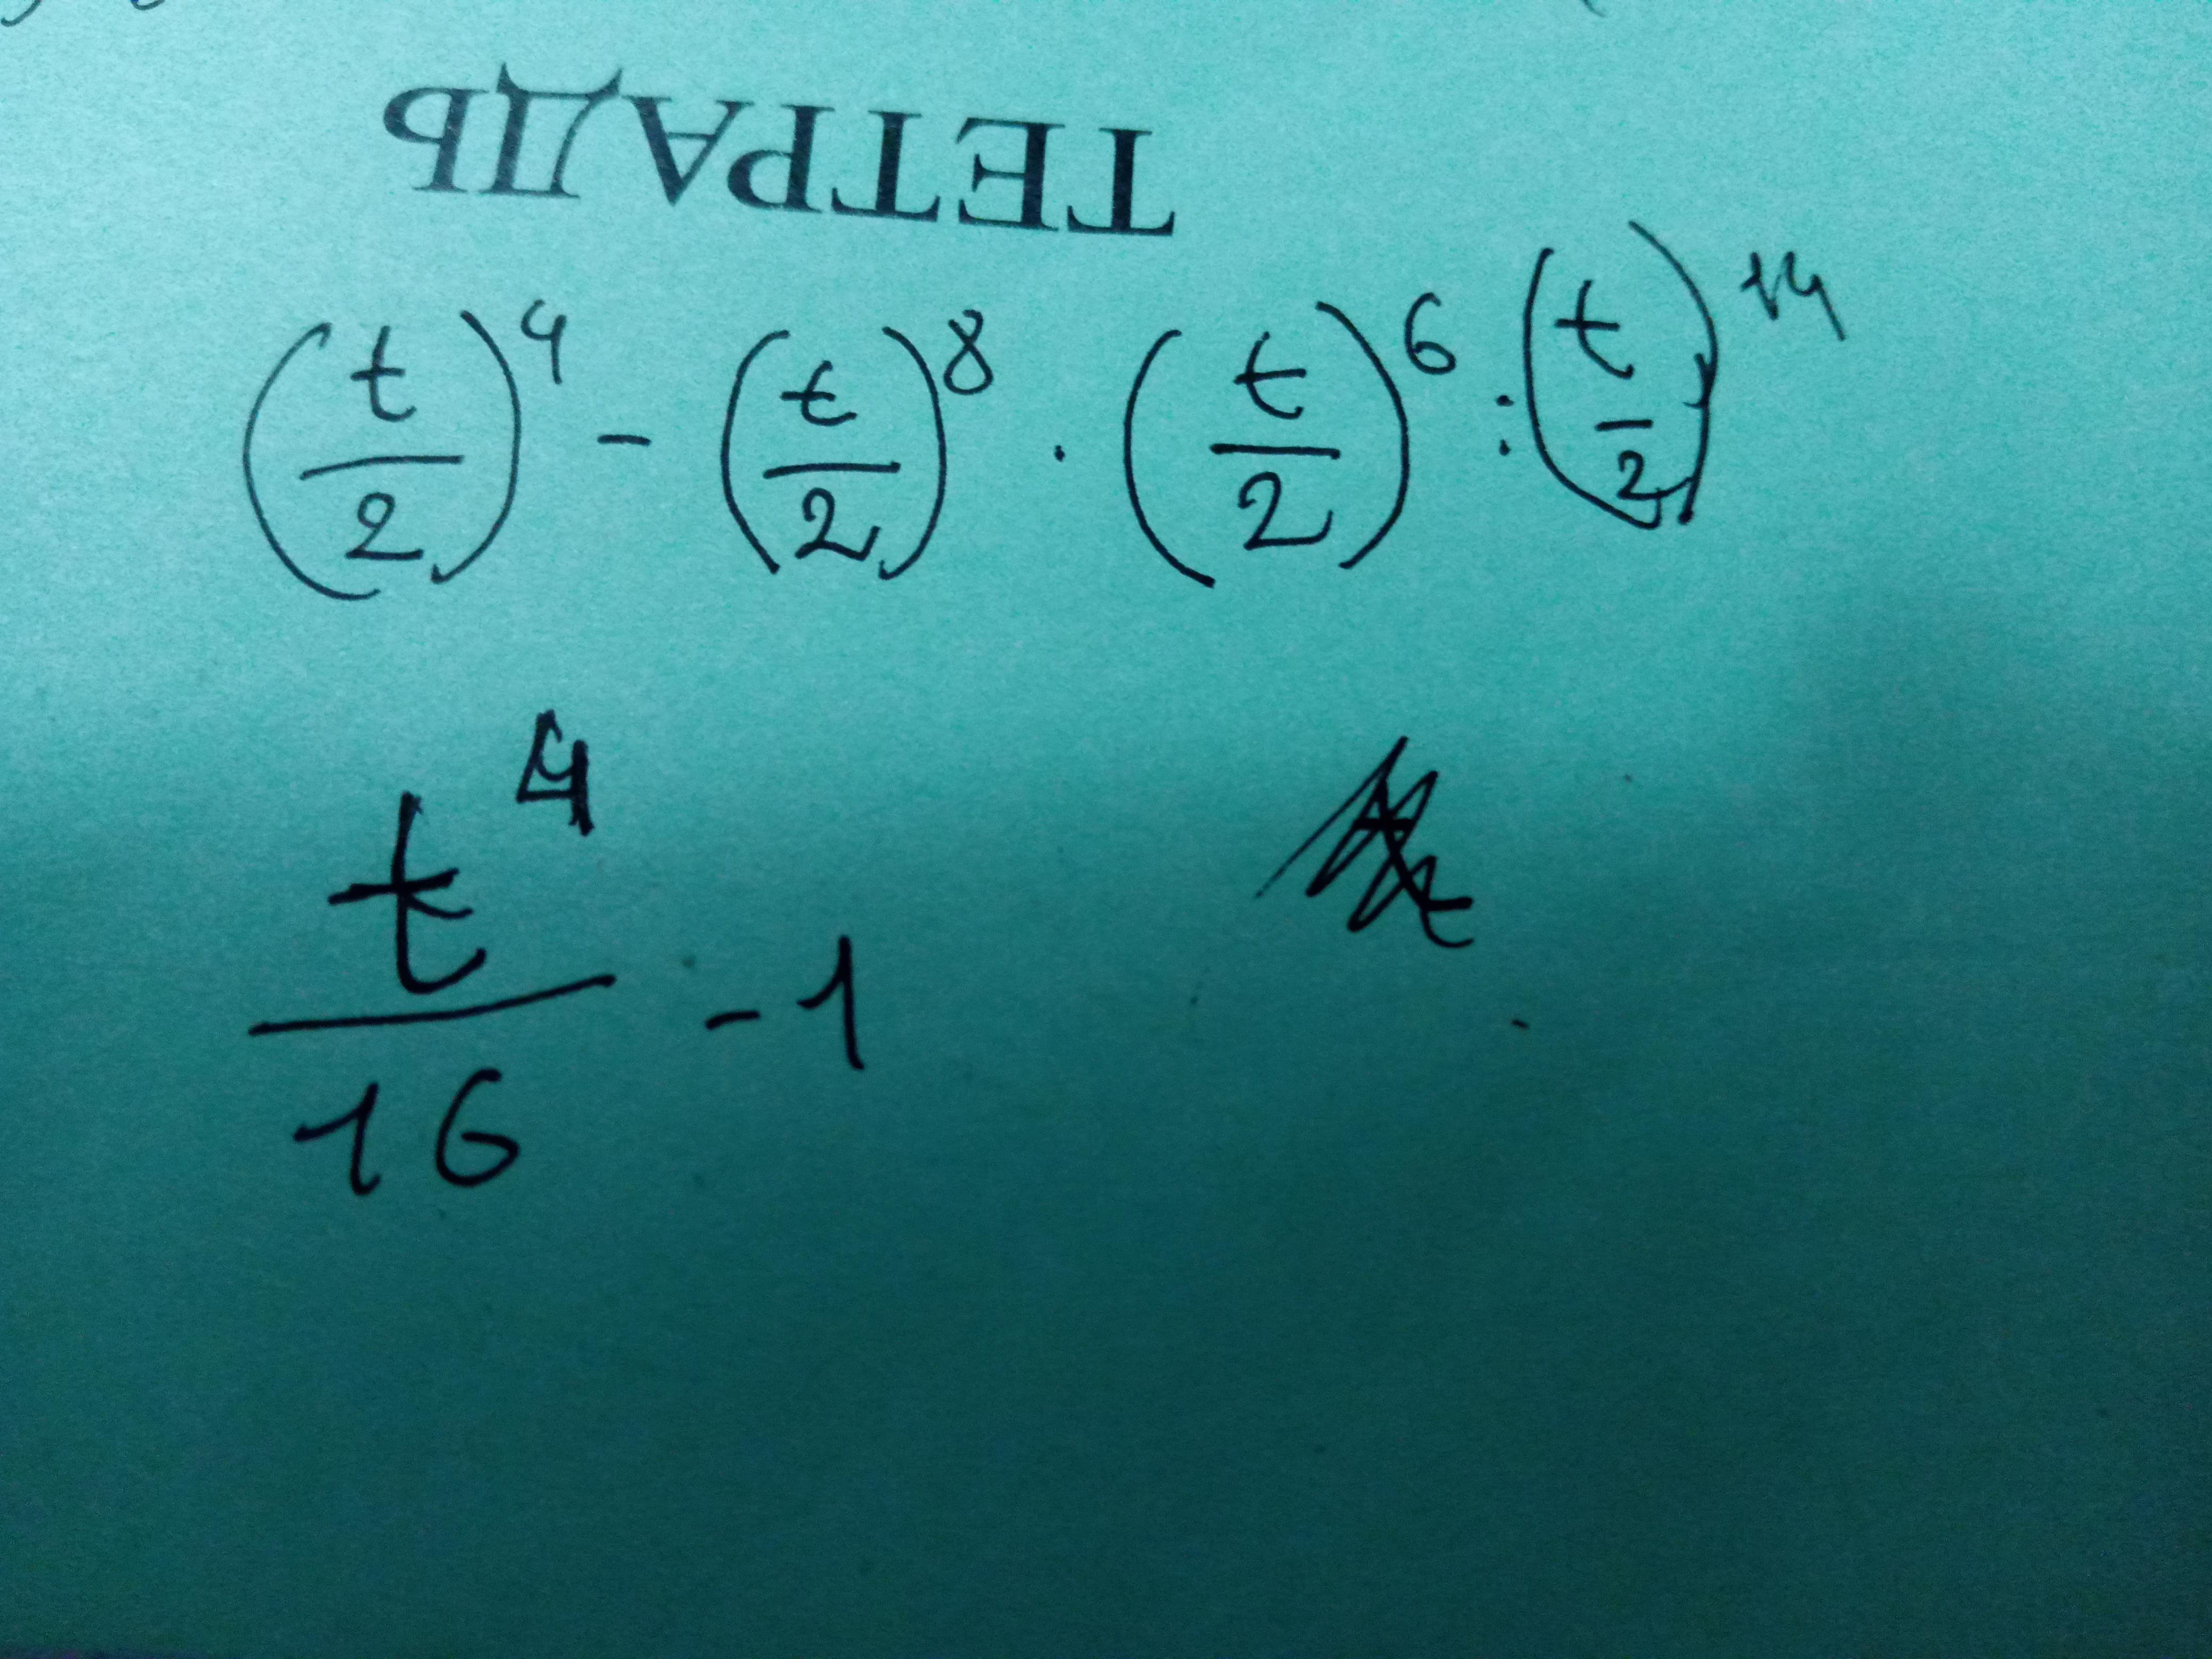 ТЕТРАДЬ
(t/2)^4 - (t/2)^8 · (t/2)^6 : (t/2)^14
t^4/16 - 1